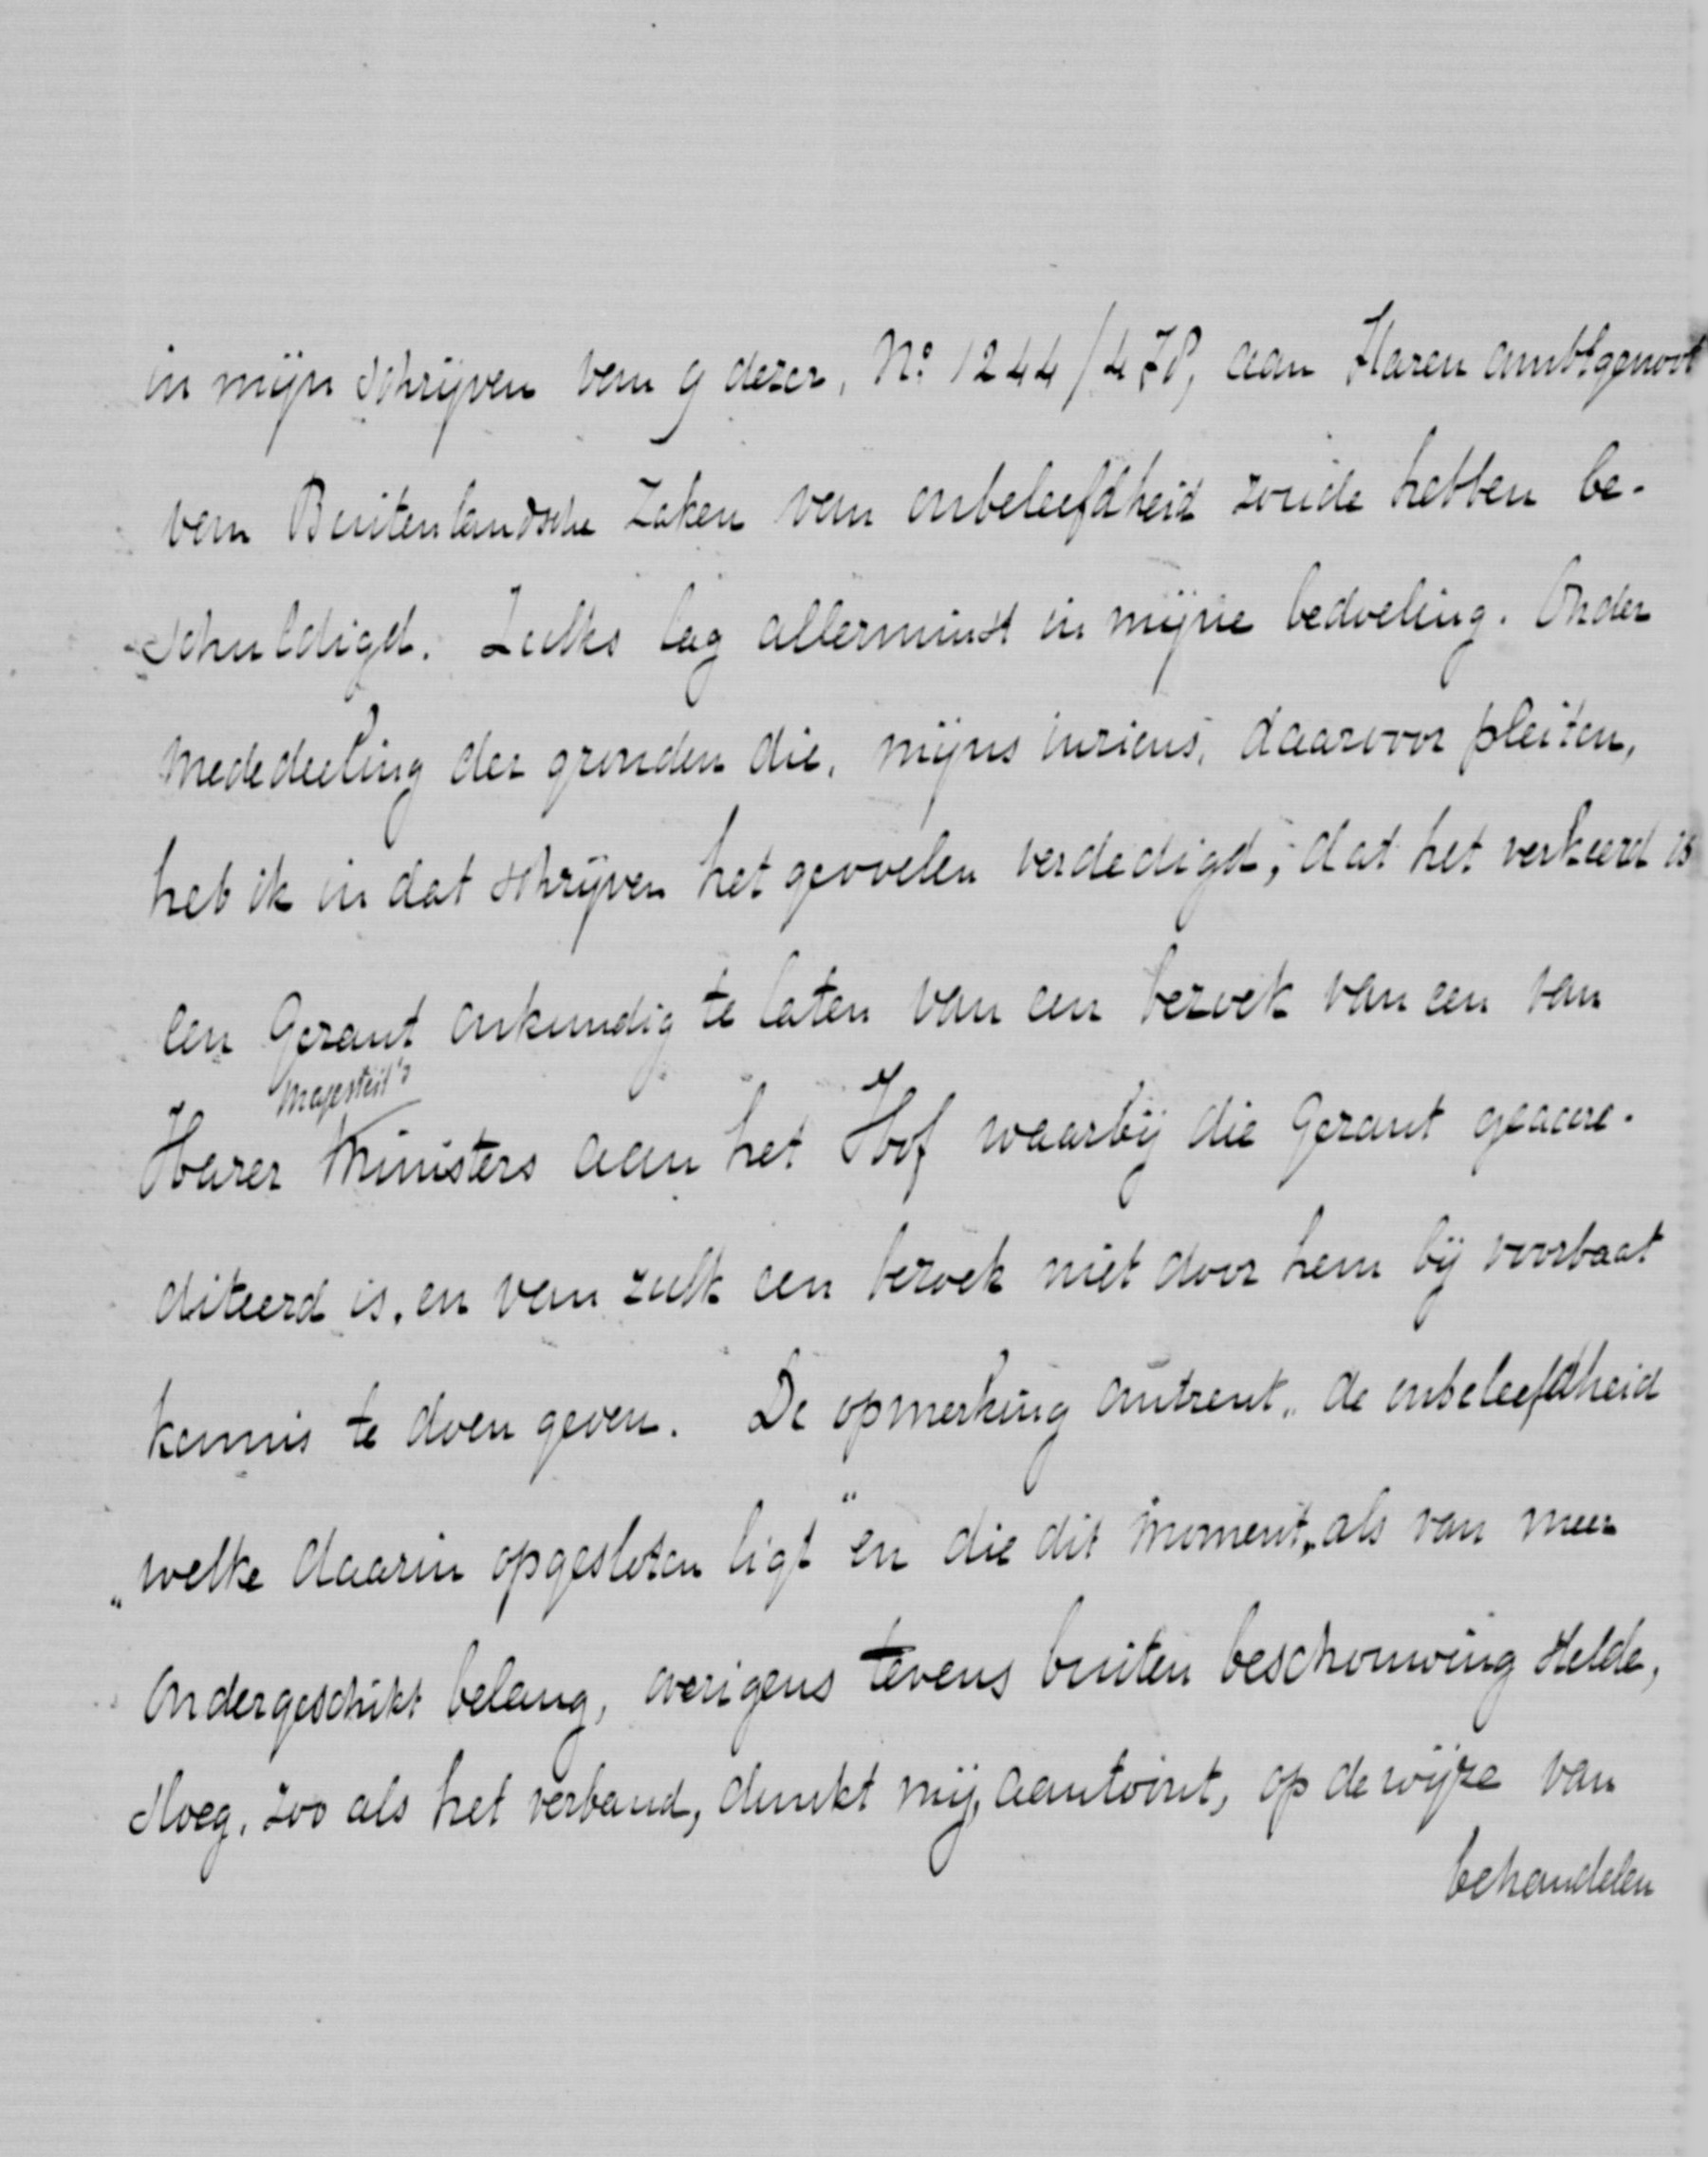 in mijn schrijven van 9 dezer, No. 1244/478, aan Haren ambtgenoot
van Buitenlandsche Zaken van onbeleefdheid zoude hebben be-
schuldigd. Zulks lag allerminst in mijne bedoeling. Onder
mededeeling der gronden die, mijns inziens, daarvoor pleiten,
heb ik in dat schrijven het gevoelen verdedigd, dat het verkeerd is
een Gerant onkundig te laten van een bezoek van een van
Majesteit's
Harer Ministers aan het Hof waarbij die Gerant geaccre-
diteerd is, en van zulk een bezoek niet door hem bij voorbaat
kennis te doen geven. De opmerking omtrent „de onbeleefdheid
„welke daarin opgesloten ligt" en die dit moment, als van meer
ondergeschikt belang, overigens tevens buiten beschouwing stelde,
sloeg, zoo als het verband, dunkt mij, aantoont, op de wijze van
behandelen